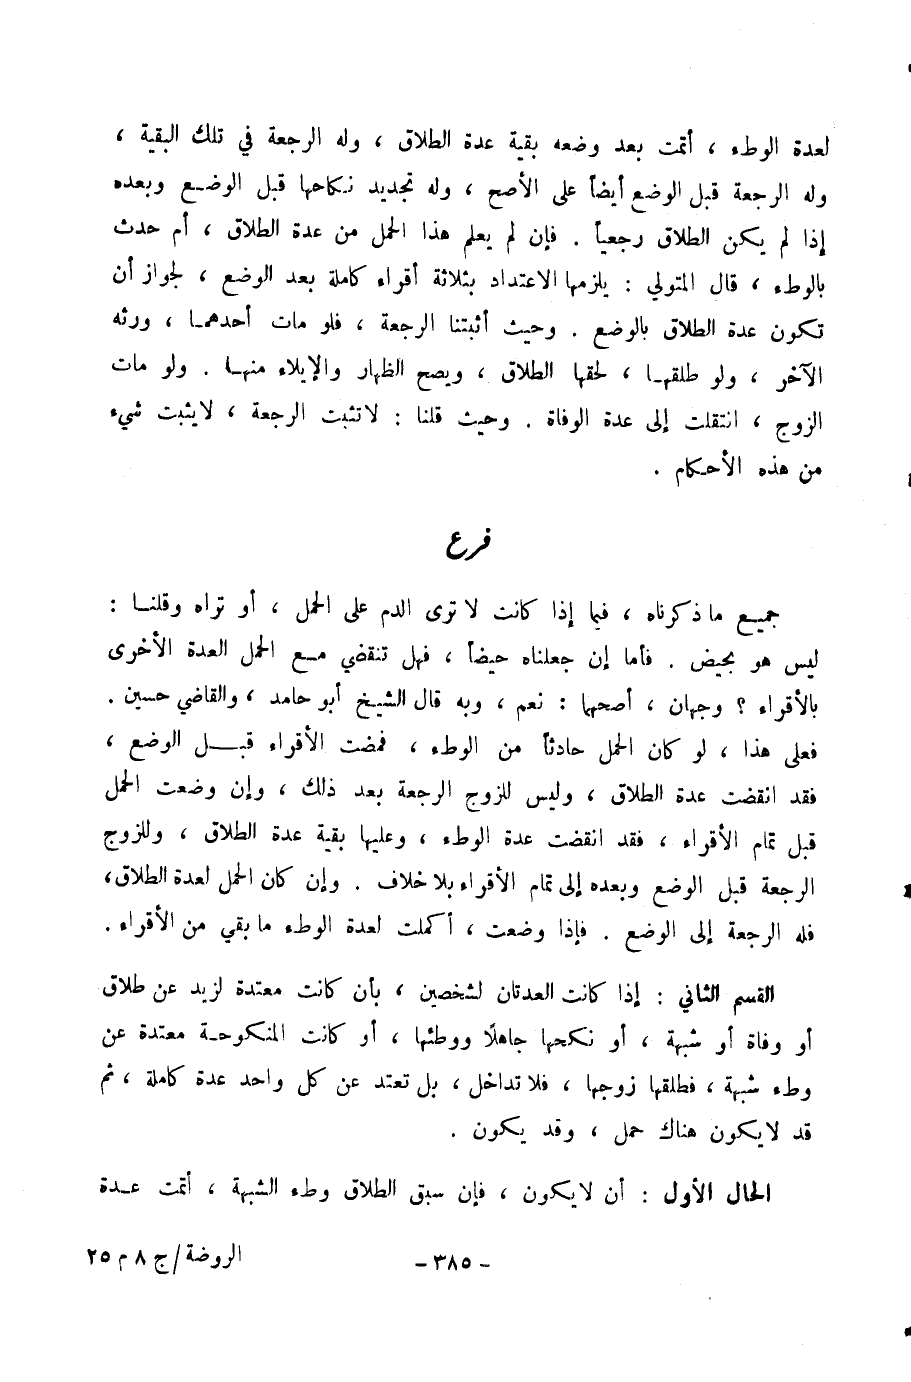 لعدة الوطء ، أتمت بعد وضعه بقية عدة الطلاق ، وله الرجعة في تلك البقية ،
وله الرجعة قبل الوضع أيضاً على الأصح ، وله تجديد نكاحها قبل الوضع وبعده
إذا لم يكن الطلاق رجعياً . فإن لم يعلم هذا الحمل من عدة الطلاق ، أم حدث
بالوطء ، قال المتولي : يلزمها الاعتداد بثلاثة أقراء كاملة بعد الوضع ، لجواز أن
تكون عدة الطلاق بالوضع . وحيث أثبتنا الرجعة ، فلو مات أحدهما ، ورثه
الآخر ، ولو طلقها ، لحقها الطلاق ، ويصح الظهار والإيلاء منها . ولو مات
الزوج ، انتقلت إلى عدة الوفاة . وحيث قلنا : لا تثبت الرجعة ، لا يثبت شيء
من هذه الأحكام .
فرع
جميع ما ذكرناه ، فيما إذا كانت لا ترى الدم على الحمل ، أو تراه وقلنا :
ليس هو بحيض . فأما إن جعلناه حيضاً ، فهل تنقضي مع الحمل العدة الأخرى
بالأقراء ؟ وجهان ، أصحهما : نعم ، وبه قال الشيخ أبو حامد ، والقاضي حسين .
فعلى هذا ، لو كان الحمل حادثاً من الوطء ، فمضت الأقراء قبل الوضع ،
فقد انقضت عدة الطلاق ، وليس للزوج الرجعة بعد ذلك ، وإن وضعت الحمل
قبل تمام الأقراء ، فقد انقضت عدة الوطء ، وعليها بقية عدة الطلاق ، وللزوج
الرجعة قبل الوضع وبعده إلى تمام الأقراء بلا خلاف . وإن كان الحمل لعدة الطلاق،
فله الرجعة إلى الوضع . فإذا وضعت ، أكملت لعدة الوطء ما بقي من الأقراء .
القسم الثاني : إذا كانت العدتان لشخصين ، بأن كانت معتدة لزيد عن طلاق
أو وفاة أو شبهة ، أو نكحها جاهلًا ووطئها ، أو كانت المنكوحة معتدة عن
وطء شبهة ، فطلقها زوجها ، فلا تداخل ، بل تعتد عن كل واحد عدة كاملة ، ثم
قد لا يكون هناك حمل ، وقد يكون .
الحال الأول : أن لا يكون ، فإن سبق الطلاق وطء الشبهة ، أتمت عدة
- ٣٨٥ -
الروضة/ج ٨ م ٢٥